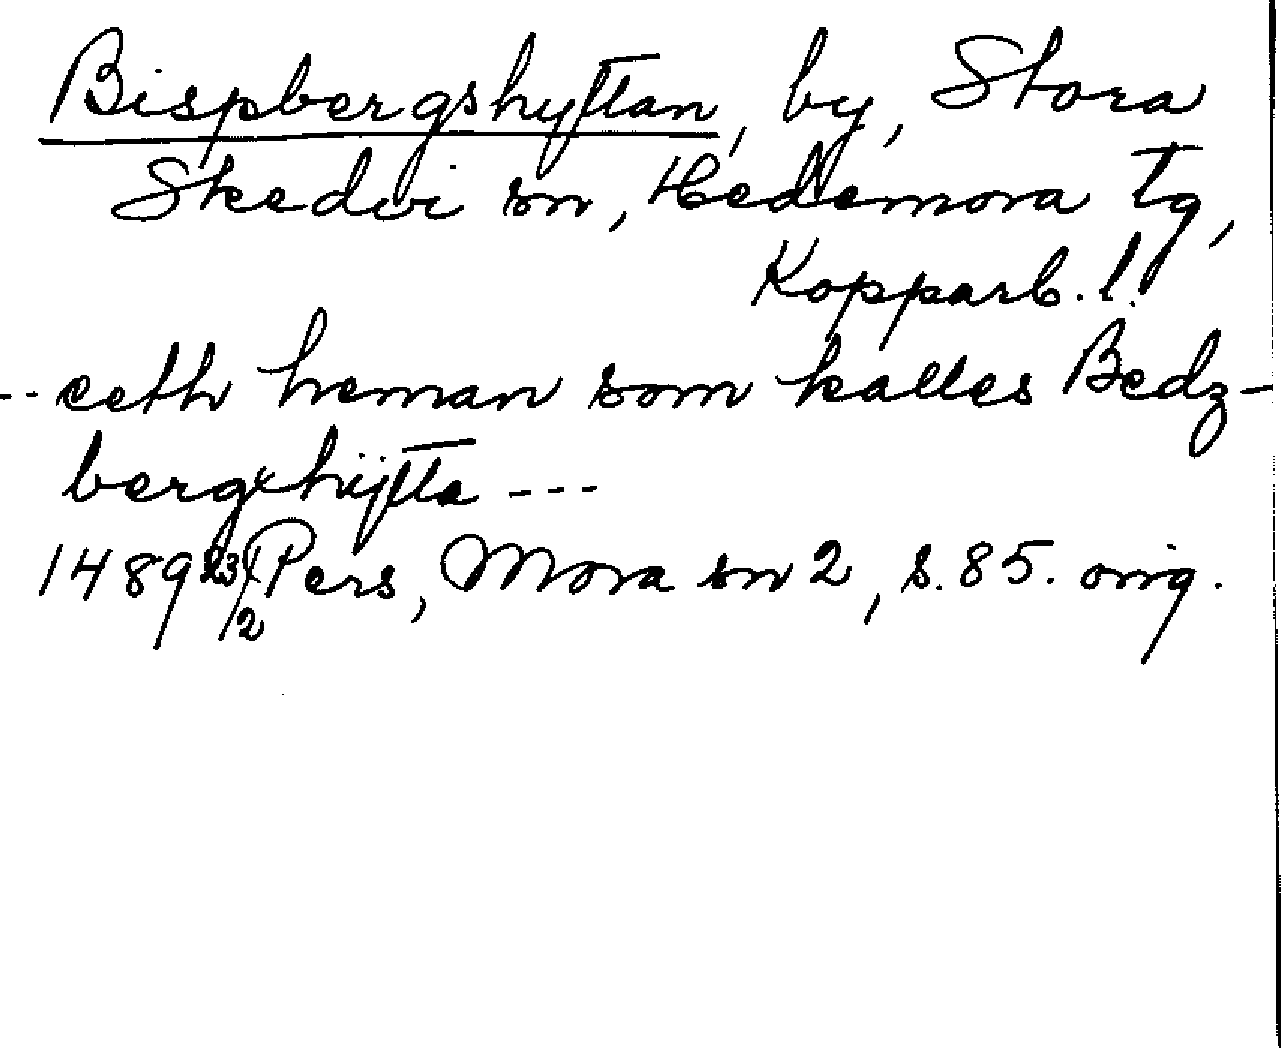 Bispbergshyttan, by, Stora
Skedvi sn, Hedemora tg,
Kopparb. l.
-- eeth heman som kalles Bedz-
bergxhÿtta ---
1489 23/2 Pers, Mora sn 2, s. 85. orig.